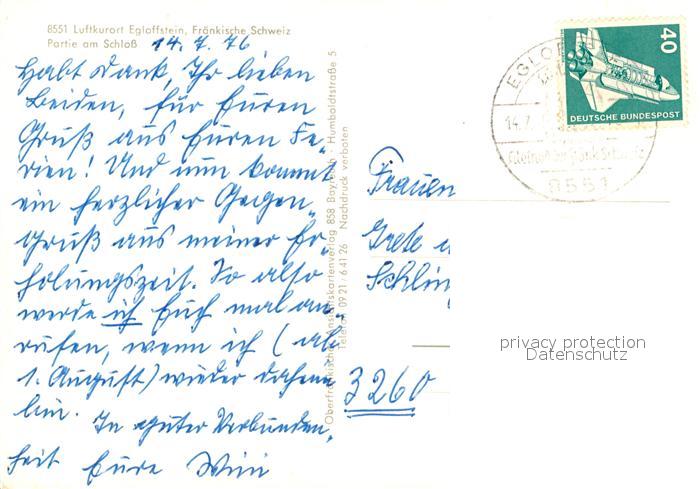 8551 Luftkurort Egloffstein, Fränkische Schweiz
Partie am Schloß 14.7.76
Habt Dank, Ihr lieben
Beiden, für Euren
Gruß aus Euren Fe-
rien! Und nun kommt
ein herzlicher Gegen-
gruß aus meiner Er-
holungszeit. So also
werde ich Euch mal an-
rufen, wenn ich (ab
1. August) wieder daheim
bin.
In guter Verbunden-
heit Eure
Oberfränkische Ansichtskartenverlag 858 Bayreuth · Humboldtstraße 5
Telefon 09 21 / 6 41 26 Nachdruck verboten
40
DEUTSCHE BUNDESPOST
EGLOF
14.7.
8551
Frauen
Grete
Schlin
3260
privacy protection
Datenschutz